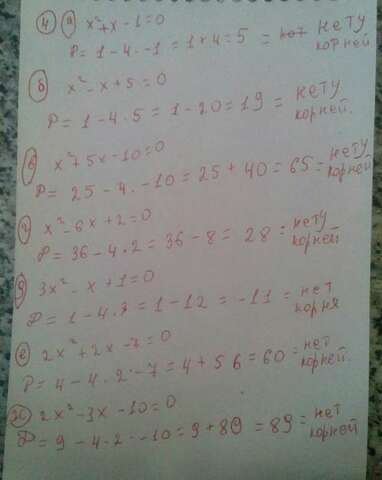 4) а) x²+x-1=0
D=1-4·-1=1+4=5=нет нету корней
б) x²-x+5=0
D=1-4·5=1-20=19=нету корней.
в) x²+5x-10=0
D=25-4·-10=25+40=65=нету корней
г) x²-6x+2=0
D=36-4·2=36-8=28=нету корней
д) 3x²-x+1=0
D=1-4·3=1-12=-11=нет корня
е) 2x²+2x-7=0
D=4-4·2·-7=4+56=60=нет корней.
ж) 2x²-3x-10=0
D=9-4·2·-10=9+89=89=нет корней